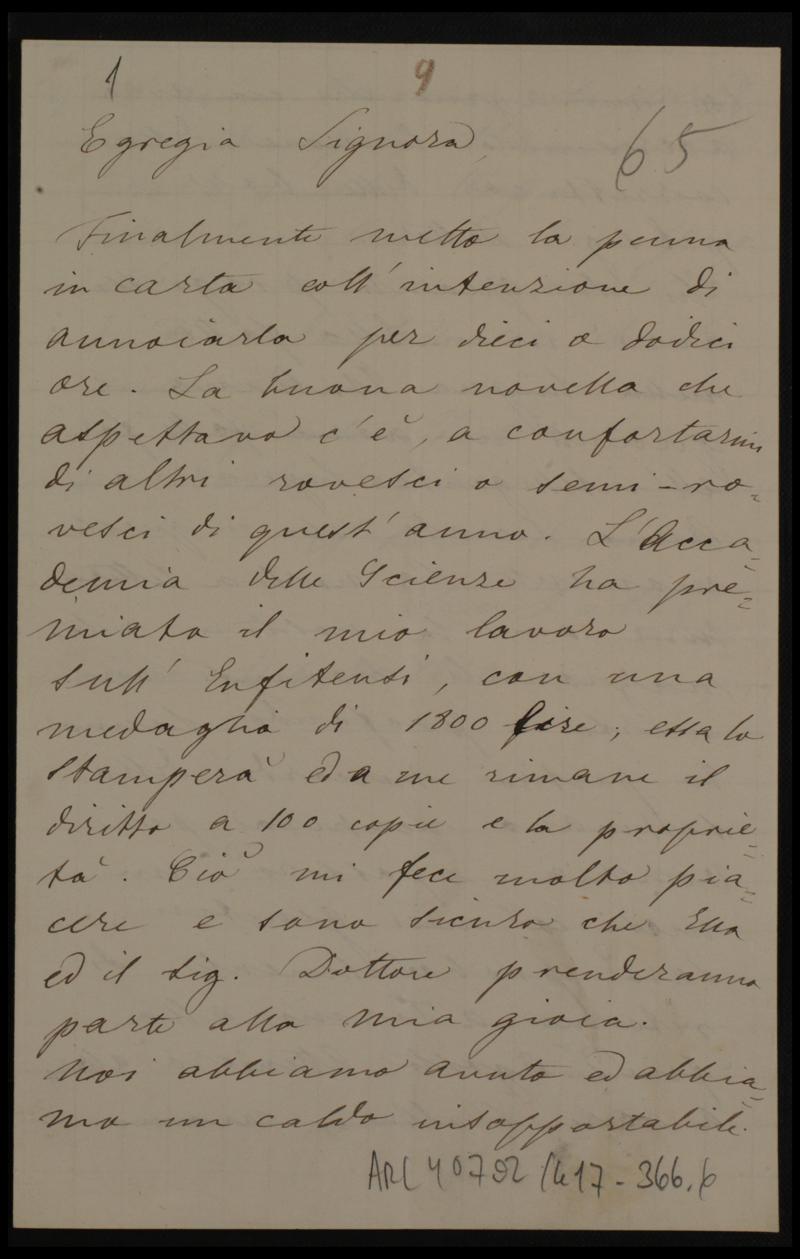 1 9
Egregia Signora, 65
Finalmente metto la penna
in carta coll'intenzione di
annoiarla per dieci o dodici
ore. La buona novella che
aspettavo c'è, a confortarmi
di altri rovesci o semi-ro=
vesci di quest'anno. L'Acca=
demia delle Scienze ha pre=
miato il mio lavoro
sull'Enfiteusi, con una
medaglia di 1800 lire; essa lo
stamperà ed a me rimane il
diritto a 100 copie e la proprie=
tà. Ciò mi fece molto pia=
cere e sono sicuro che Ella
ed il sig. Dottore prenderanno
parte alla mia gioia.
Noi abbiamo avuto ed abbia=
mo un caldo insopportabile.
ARC 4°0792 /417-366.6